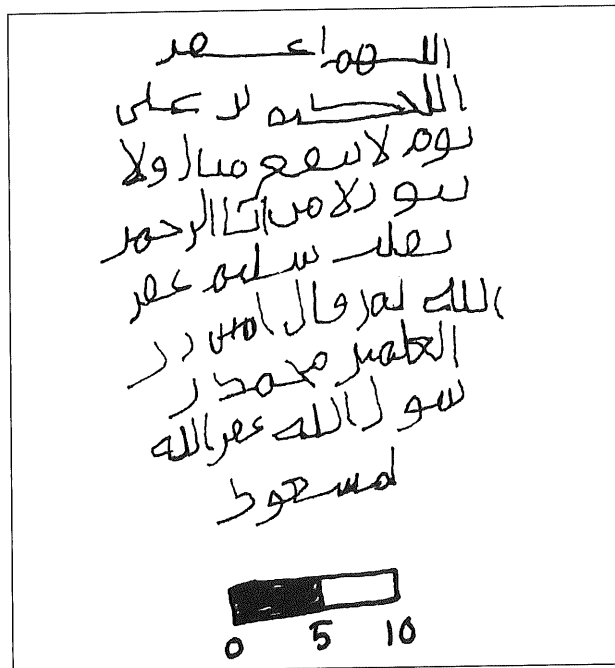 اللهم اغفر
على
يوم لا ينفع مال ولا
بنو ن الا من اتا الرحمن
بقلب سليم غفر
الله لمن قال امين رب
العلمين محمد ر
سول الله غفر الله
لمسعود
0 5 10